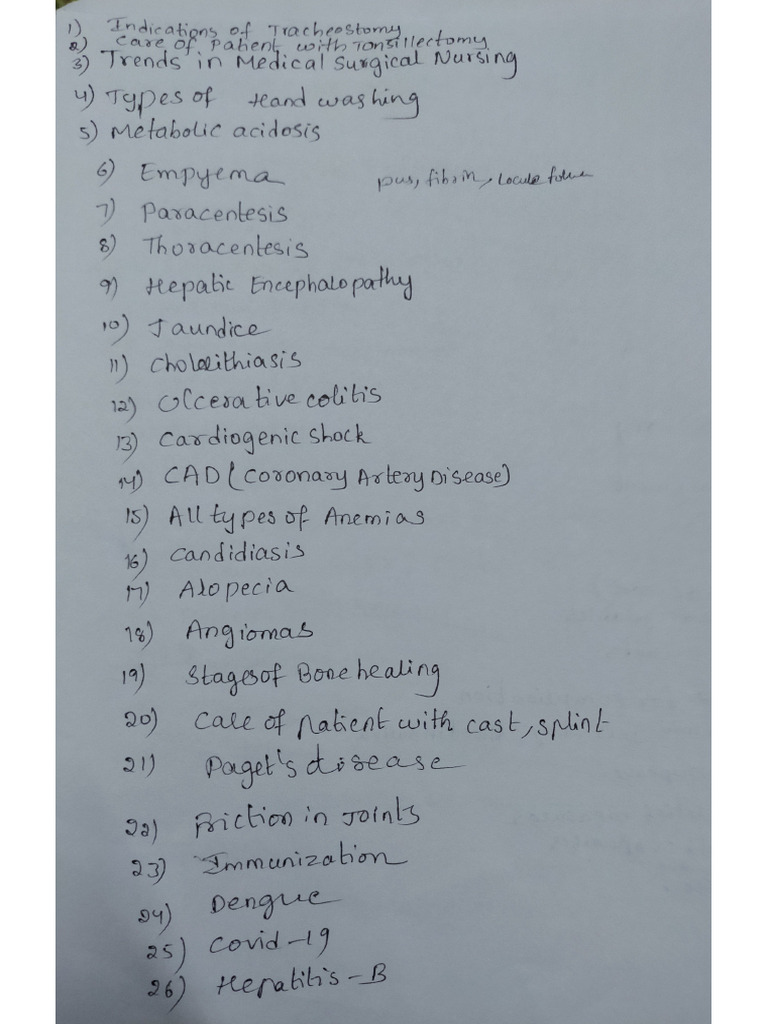 1) Indications of Tracheostomy
2) Care of Patient with Tonsillectomy
3) Trends in Medical Surgical Nursing
4) Types of Hand washing
5) Metabolic acidosis
6) Empyema pus, fibrin,
7) Paracentesis
8) Thoracentesis
9) Hepatic Encephalopathy
10) Jaundice
11) Cholelithiasis
12) Ulcerative colitis
13) Cardiogenic shock
14) CAD (Coronary Artery Disease)
15) All types of Anemias
16) Candidiasis
17) Alopecia
18) Angiomas
19) Stages of Bone healing
20) Care of patient with cast, splint
21) Paget's disease
22) Friction in Joints
23) Immunization
24) Dengue
25) Covid-19
26) Hepatitis-B